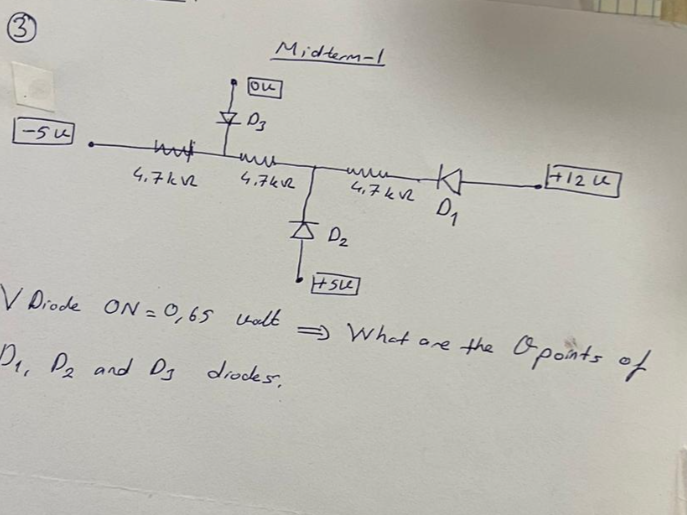 ③
Midterm-1
0V
D3
-5V
4,7kΩ
4,7kΩ
4,7kΩ
D1
+12V
D2
+5V
V Diode ON = 0,65 volt ⇒ What are the Q points of
D1, D2 and D3 diodes.